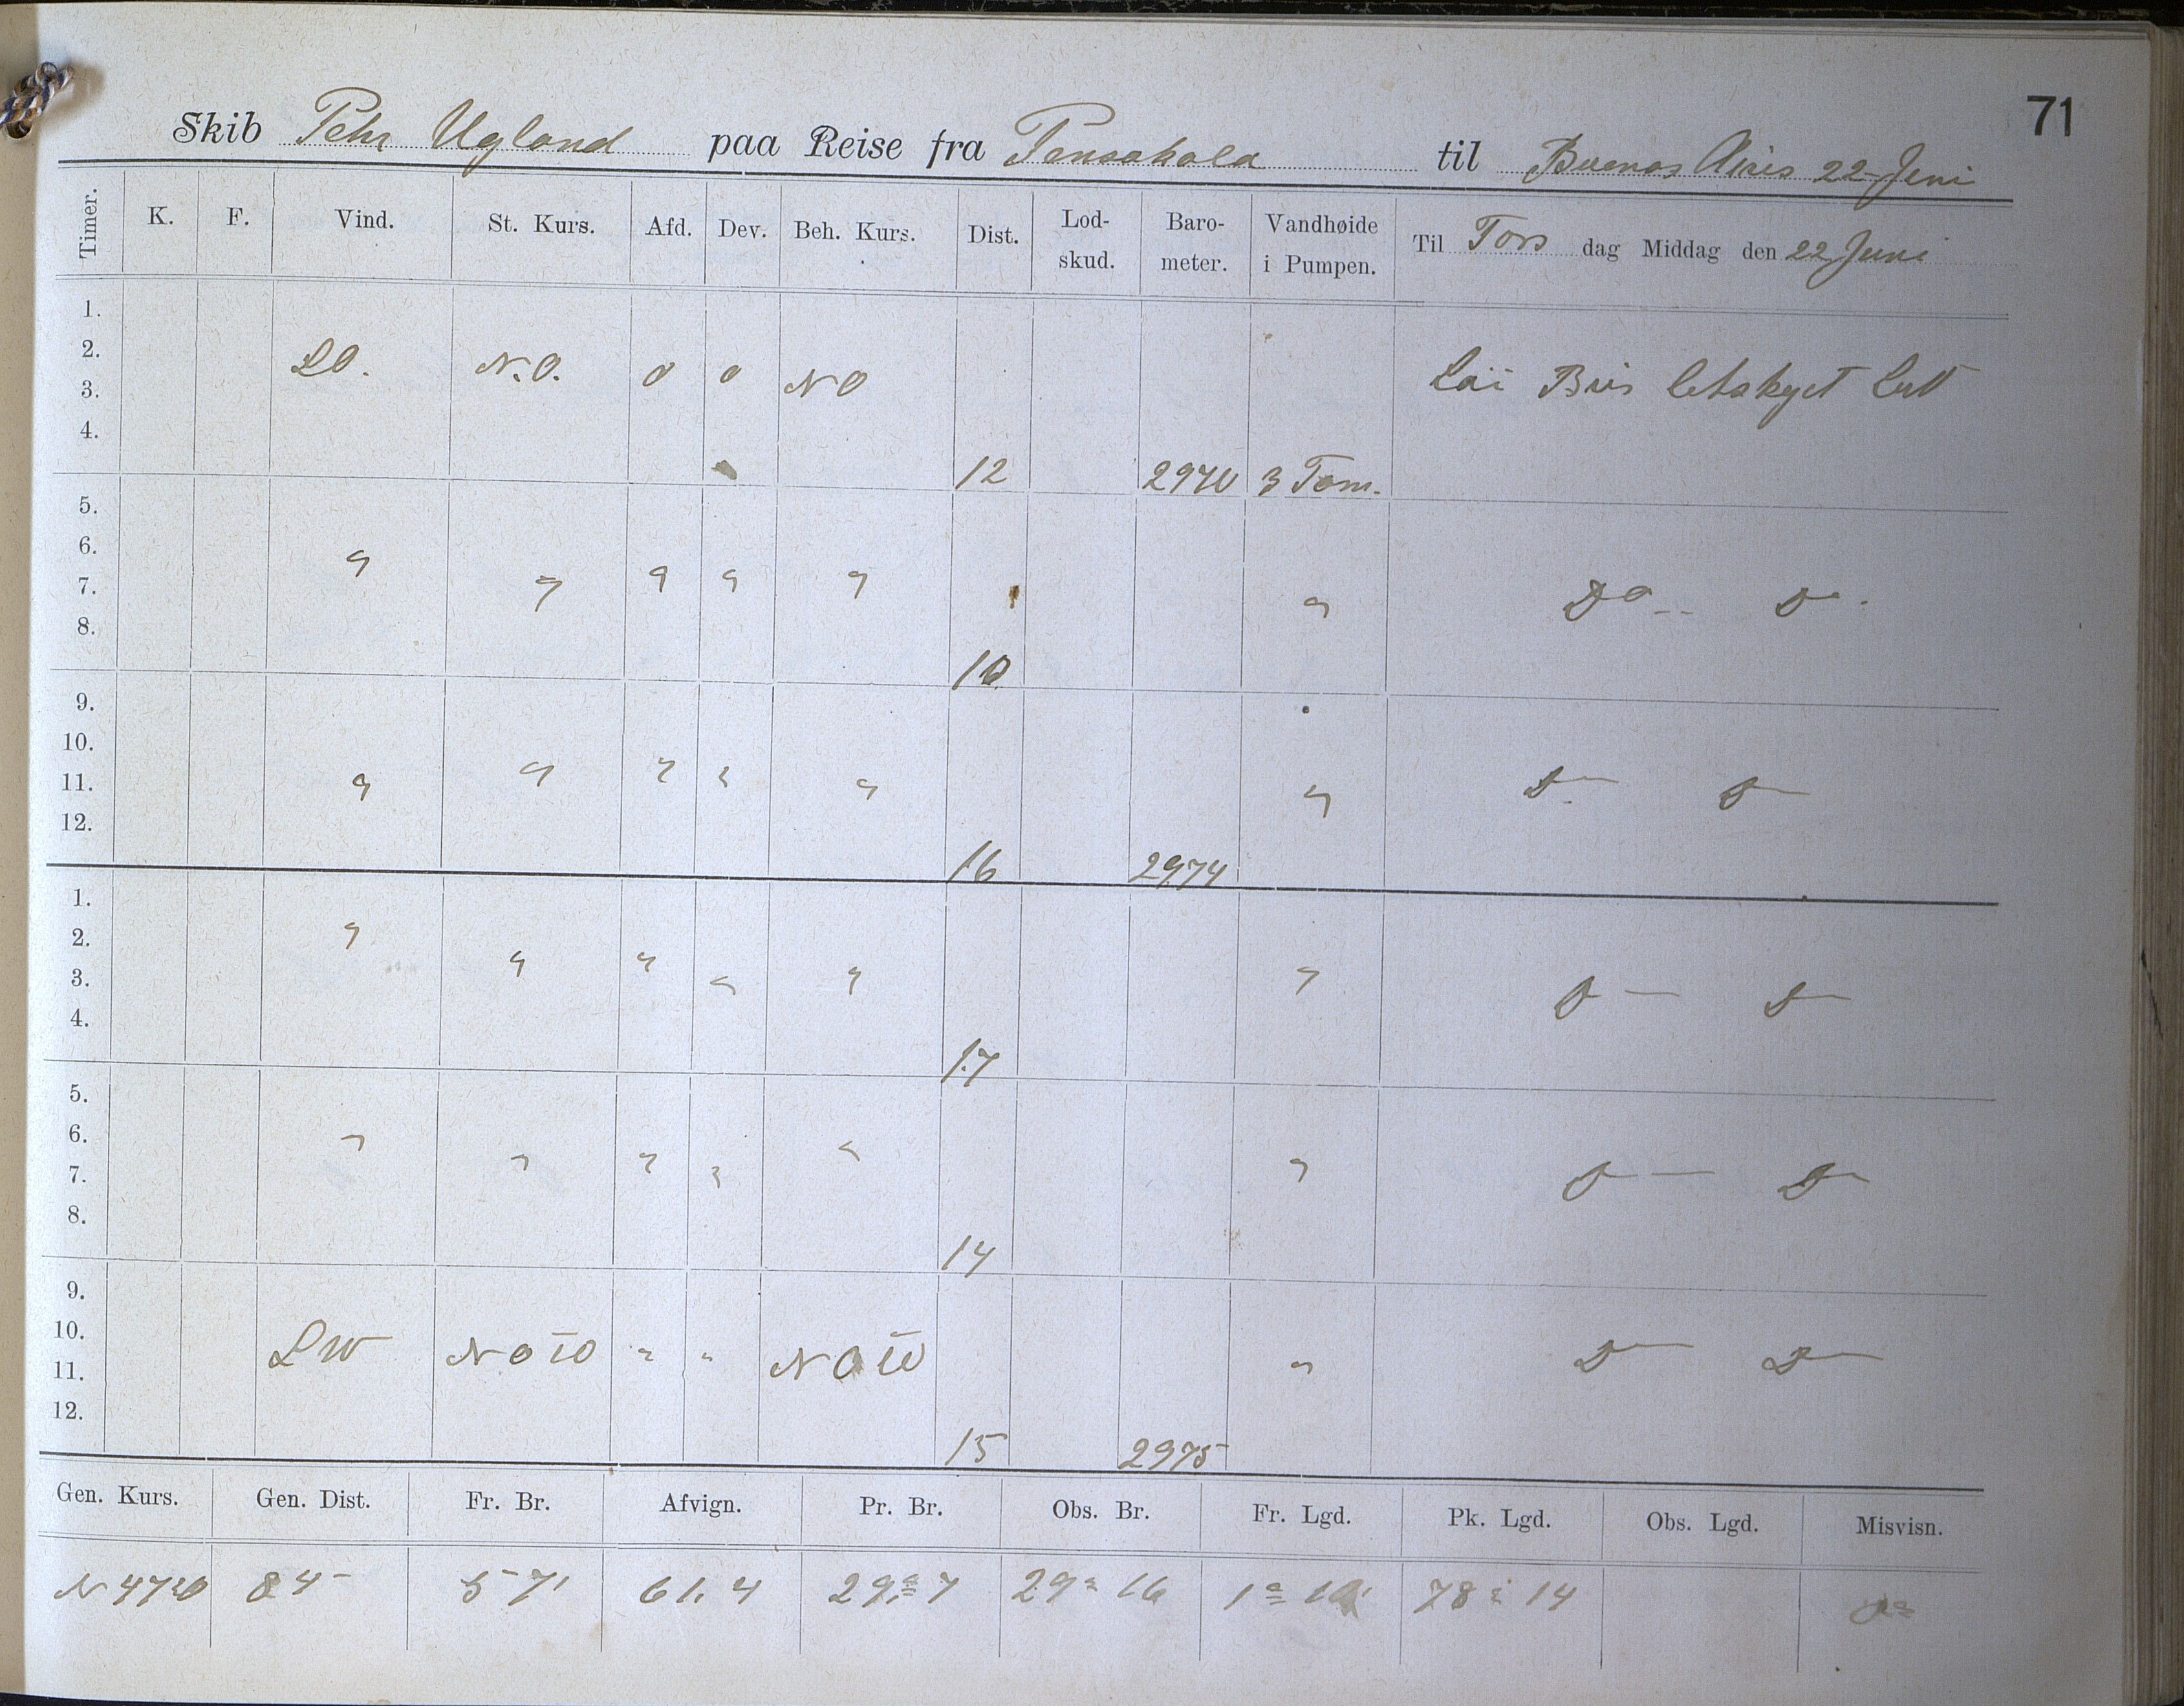 71
Skib Pehr Ugland paa Reise fra Pensakola til Buenos Aires 22 Juni
Timer. K. F. Vind. St. Kurs. Afd. Dev. Beh. Kurs. Dist. Lod-skud. Baro-meter. Vandhøide i Pumpen. Til Tors dag Middag den 22 Juni
1.
2. SO. N.O. 0 0 NO Laii Bris letskyet Luft
3.
4. 12 2970 3 Tom.
5.
6. " " " " " " Do -- D -
7.
8. 10
9.
10. " " " " " " D - D -
11.
12. 16 2974
1.
2. " " " " " " D - D -
3.
4. 17
5.
6. " " " " " " D - D -
7.
8. 14
9.
10. SW NOtO " " NOtO " D - D -
11.
12. 15 2975
Gen. Kurs. Gen. Dist. Fr. Br. Afvign. Pr. Br. Obs. Br. Fr. Lgd. Pk. Lgd. Obs. Lgd. Misvisn.
N 47 O 84 57' 61,4 29° 7 29° 16 78° 14